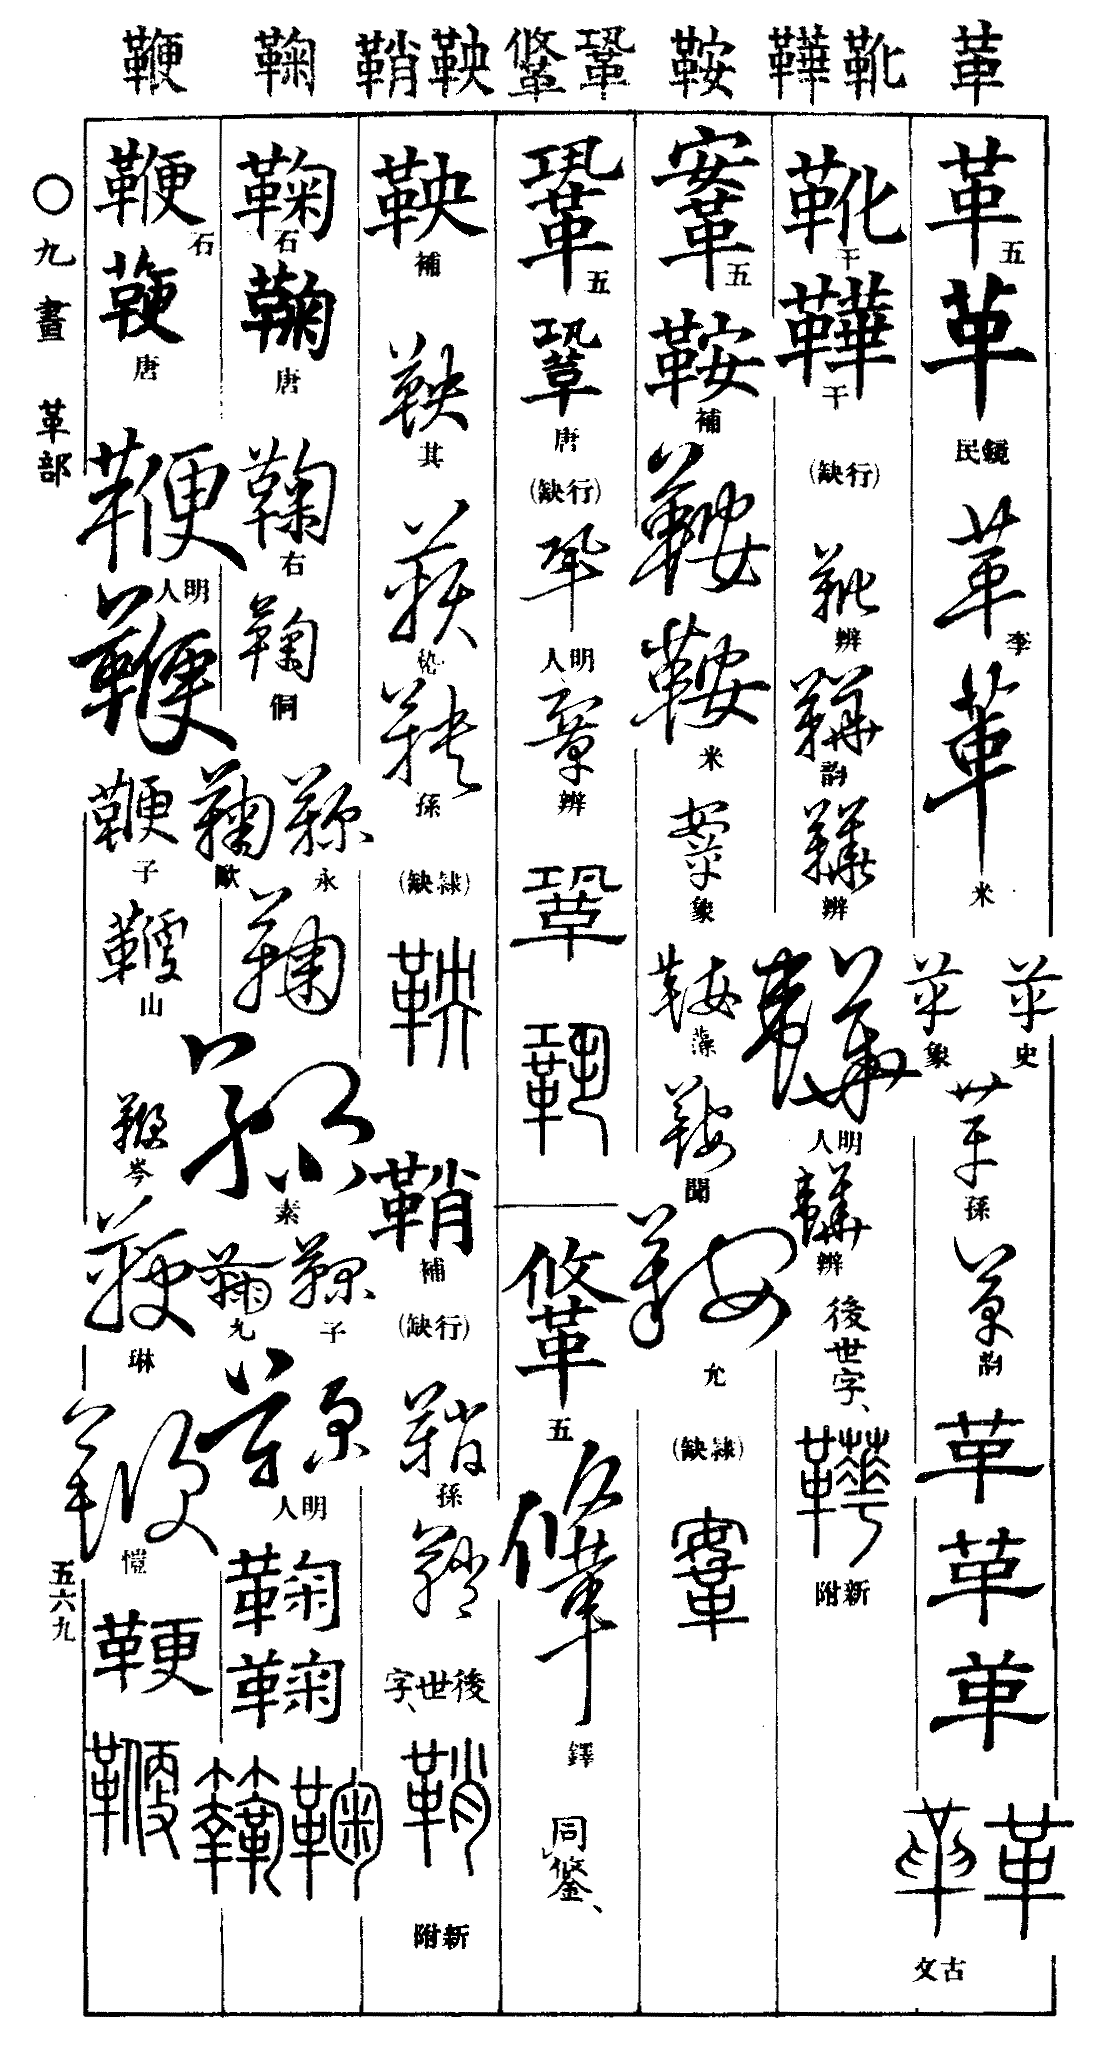 革 靴 鞾 鞍 鞏 鞗 鞅 鞘 鞠 鞭
革 五
革 鏡民
革 李
革 米
革 史
革 象
革 孫
革 韵
革
革
革
革
革 古文
靴 干
鞾 干
(行缺)
靴 辨
鞾 韵
鞾 辨
鞾 明人
鞾 辨
後世字、
鞾
新附
鞍 五
鞍 補
鞍
鞍 米
鞍 象
鞍 藻
鞍 聞
鞍 允
(隷缺)
鞍
鞏 五
鞏 唐
(行缺)
鞏 明人
鞏 辨
鞏
鞏
鞗 五
鞗 鐸
同鋚、
鞅 補
鞅 其
鞅
鞅 孫
(隷缺)
鞅
鞘 補
(行缺)
鞘 孫
鞘
後世字、
鞘
新附
鞠 石
鞠 唐
鞠 右
鞠 侗
鞠 永
鞠 歐
鞠
鞠 素
鞠 子
鞠 九
鞠 明人
鞠
鞠
鞠
鞭 石
鞭 唐
鞭 明人
鞭
鞭 子
鞭 山
鞭 岑
鞭 琳
鞭 愷
鞭
鞭
〇九畫 革部
五六九